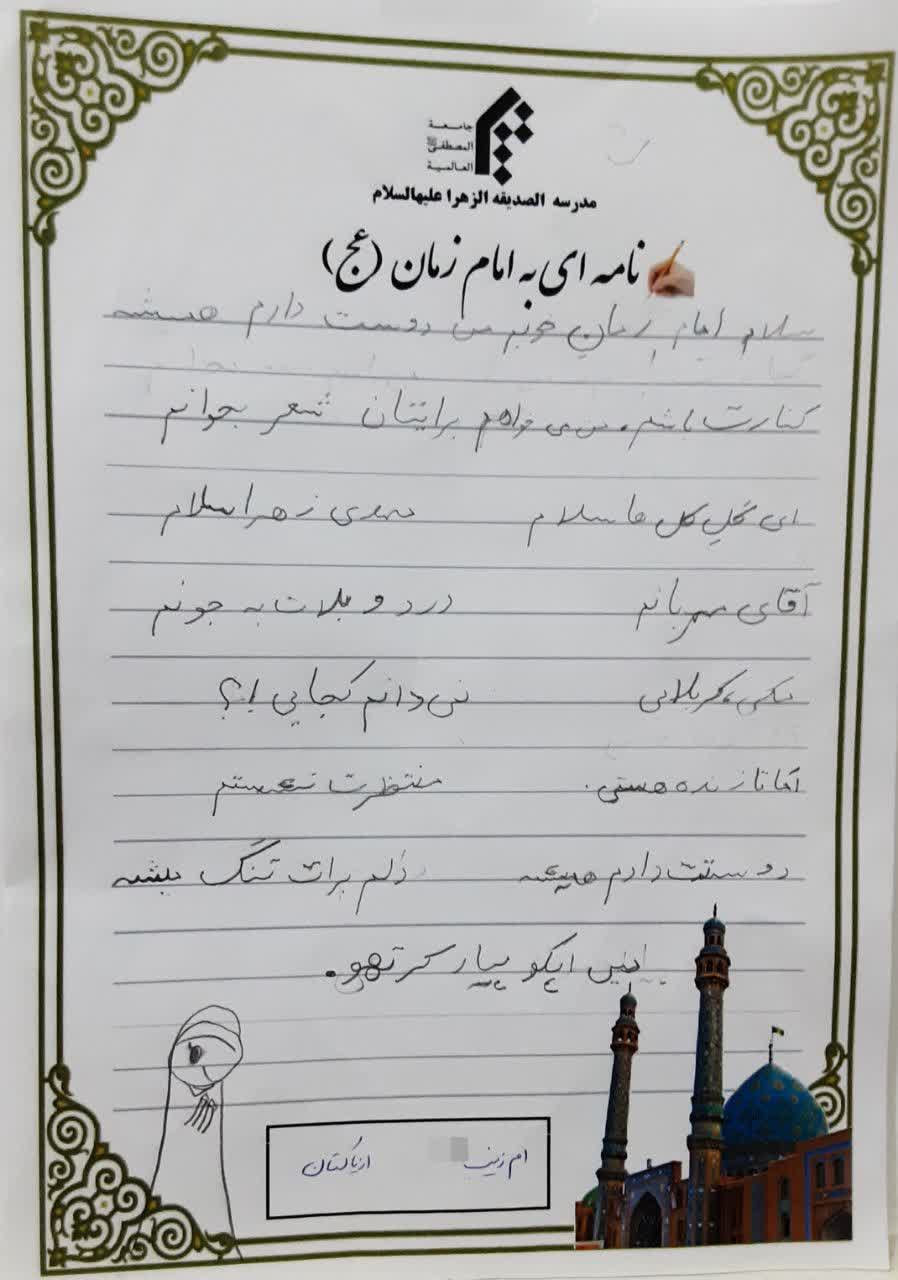 جامعة
المصطفی
العالمية
مدرسه الصدیقه الزهرا علیهالسلام
نامه ای به امام زمان (عج)
سلام امام زمانِ خوبم من دوست دارم همیشه
کنارت باشم. من می خواهم برایتان شعر بخوانم
ای گلِ گل ها سلام مهدی زهرا سلام
آقای مهربانم درد و بلات به جونم
مکی، کربلایی نمی دانم کجایی !؟
آقا تا زنده هستم. منتظرت نشستم
دوستت دارم همیشه دلم برات تنگ میشه
میں اپکو پیار کرتهو.
ام زینب از پاکستان